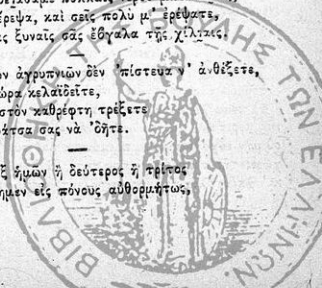 έρεψα, καὶ σεῖς πολὺ μ' ἐρέψατε,
ξυπνιαῖς σᾶς ἔβγαλα τῇς χίλιαις.
ἀγρυπνιῶν δὲν 'πίστευα ν' ἀνθέξετε,
ώρα κελαϊδεῖτε,
στὸν καθρέφτη τρέξετε
άτσα σας νὰ 'δῆτε.
ἡμῶν ἢ δεύτερος ἢ τρίτος
ημεν εἰς πόνους αὐθορμήτως,
ΒΙΒΛΙΟΘΗΚΗ ΤΗΣ ΒΟΥΛΗΣ ΤΩΝ ΕΛΛΗΝΩΝ